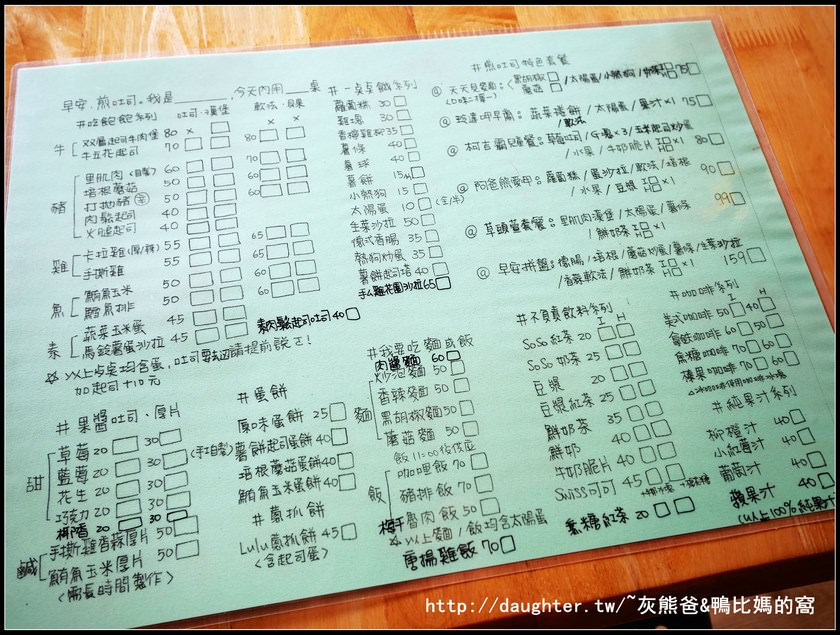 早安.煎吐司。我是______ 今天內用___桌
#吃飽飽系列 吐司·漢堡 軟法·貝果
牛 双層起司牛肉堡 80 x 80 x x
牛五花起司 70 70
豬 里肌肉(自製) 60 70
培根蘑菇 50 60
打拋豬(辛) 50 60
肉鬆起司 40
火腿起司 40
雞 卡拉雞(原/辣) 55 65
手撕雞 55 65
魚 鮪魚玉米 50 60
鱈魚排 50 60
素 蔬菜玉米蛋 45
馬鈴薯蛋沙拉 45 素肉鬆起司吐司 40
☆以上点桌均含蛋,吐司要去邊請提前說ㄛ!
加起司+10元
#果醬吐司·厚片
甜 草莓 20 30
藍莓 20 30 (手工自製)
花生 20 30
巧克力 20 30
椰香 20 30
鹹 手撕雞香蒜厚片 50
鮪魚玉米厚片 50
(需長時間製作)
#蛋餅
原味蛋餅 25
薯餅起司蛋餅 40
培根蘑菇蛋餅 40
鮪魚玉米蛋餅 40
#蔥抓餅
Lulu蔥抓餅 45
(含起司蛋)
#一桌点餓系列
蘿蔔糕 30
雞塊 30
香檸雞柳 35
薯條 40
薯球 40
薯餅 15
小熱狗 15
太陽蛋 10 (全/半)
生菜沙拉 50
德式香腸 35
熱狗炒蛋 35
薯餅起司培 40
手ㄙ雞花園沙拉 65
#我要吃麵或飯
肉醬麵 60
麵 炒泡麵 50
香辣麵 50
黑胡椒麵 50
蘑菇麵 50
飯11:00後供應
飯 咖哩飯 70
豬排飯 70
梅干魯肉飯 50
☆以上麵/飯均含太陽蛋
唐揚雞飯 70
#煎吐司特色套餐
@天天見麵:(黑胡椒 蘑菇 /太陽蛋/小熱狗/ 75
(口味二擇一)
@玲達呷早齋:蔬菜捲餅/太陽蛋/果汁x1 75
/軟法
@柯吉霸凡餐:豬吐司/G塊x3/玉米起司炒蛋
/水果/牛奶脆片 x1 80
@阿爸熊愛呷:蘿蔔糕/蛋沙拉/軟法/培根
/水果/豆漿 x1 90
@草頭董套餐:里肌肉漢堡/太陽蛋/薯條
/鮮奶茶 x1 99
@早安拼盤:德腸/培根/蘑菇炒蛋/薯條/生菜沙拉
/香蒜軟法/鮮奶茶 x1 159
#不負責飲料系列
I H
SoSo紅茶 20
SoSo奶茶 25
豆漿 20
豆漿紅茶 25
鮮奶茶 35
鮮奶 40
牛奶脆片 40
Swiss可可 45
蕉糖紅茶 20
#咖啡系列
I H
美式咖啡 50 40
拿鉄咖啡 60 50
焦糖咖啡 70 60
榛果咖啡 70 60
△冰咖啡使用咖啡冰塊
#純果汁系列
柳橙汁 40
小紅莓汁 40
葡萄汁 40
蘋果汁 40
(以上100%純果汁)
http://daughter.tw/~灰熊爸&鴨比媽的窩